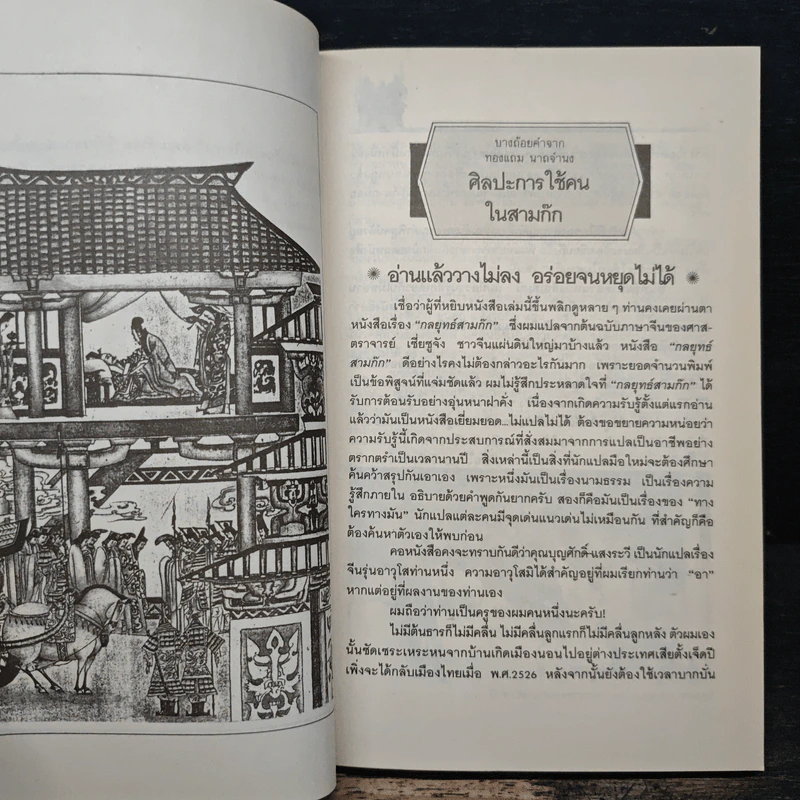 บางถ้อยคำจาก
ทองแถม นาถจำนง
ศิลปะการใช้คน
ในสามก๊ก
อ่านแล้ววางไม่ลง อร่อยจนหยุดไม่ได้
เชื่อว่าผู้ที่หยิบหนังสือเล่มนี้ขึ้นพลิกดูหลาย ๆ ท่านคงเคยผ่านตา
หนังสือเรื่อง “กลยุทธ์สามก๊ก” ซึ่งผมแปลจากต้นฉบับภาษาจีนของศาส-
ตราจารย์ เซี่ยซูจัง ชาวจีนแผ่นดินใหญ่มาบ้างแล้ว หนังสือ “กลยุทธ์
สามก๊ก” ดีอย่างไรคงไม่ต้องกล่าวอะไรกันมาก เพราะยอดจำนวนพิมพ์
เป็นข้อพิสูจน์ที่แจ่มชัดแล้ว ผมไม่รู้สึกประหลาดใจที่ “กลยุทธ์สามก๊ก” ได้
รับการต้อนรับอย่างอุ่นหนาฝาคั่ง เนื่องจากเกิดความรับรู้ตั้งแต่แรกอ่าน
แล้วว่ามันเป็นหนังสือเยี่ยมยอด...ไม่แปลไม่ได้ ต้องขอขยายความหน่อยว่า
ความรับรู้นี้เกิดจากประสบการณ์ที่สั่งสมมาจากการแปลเป็นอาชีพอย่าง
ตรากตรำเป็นเวลานานปี สิ่งเหล่านี้เป็นสิ่งที่นักแปลมือใหม่จะต้องศึกษา
ค้นคว้าสรุปกันเอาเอง เพราะหนึ่งมันเป็นเรื่องนามธรรม เป็นเรื่องความ
รู้สึกภายใน อธิบายด้วยคำพูดกันยากครับ สองก็คือมันเป็นเรื่องของ “ทาง
ใครทางมัน” นักแปลแต่ละคนมีจุดเด่นแนวเด่นไม่เหมือนกัน ที่สำคัญก็คือ
ต้องค้นหาตัวเองให้พบก่อน
คอหนังสือคงจะทราบกันดีว่าคุณบุญศักดิ์-แสงระวี เป็นนักแปลเรื่อง
จีนรุ่นอาวุโสท่านหนึ่ง ความอาวุโสมิได้สำคัญอยู่ที่ผมเรียกท่านว่า “อา”
หากแต่อยู่ที่ผลงานของท่านเอง
ผมถือว่าท่านเป็นครูของผมคนหนึ่งนะครับ!
ไม่มีต้นธารก็ไม่มีคลื่น ไม่มีคลื่นลูกแรกก็ไม่มีคลื่นลูกหลัง ตัวผมเอง
นั้นซัดเซระเหระหนจากบ้านเกิดเมืองนอนไปอยู่ต่างประเทศเสียตั้งเจ็ดปี
เพิ่งจะได้กลับเมืองไทยเมื่อ พ.ศ.2526 หลังจากนั้นยังต้องใช้เวลาบากบั่น